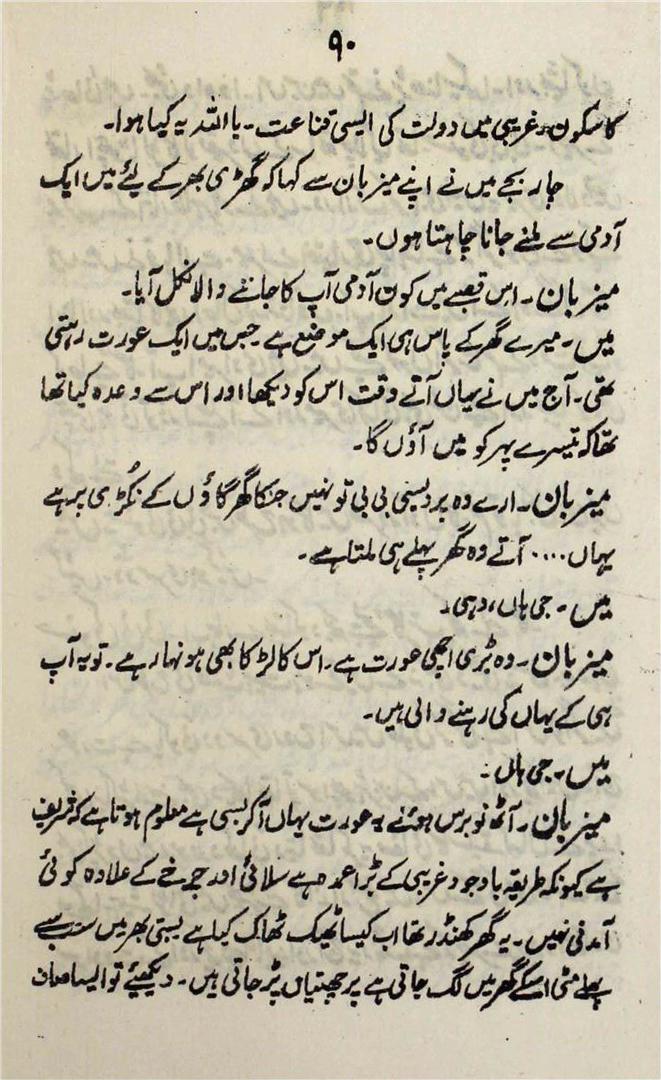 ۹۰
کا سکون، غریبی میں دولت کی ایسی قناعت۔ یا اللہ یہ کیا ہوا۔
چار بجے میں نے اپنے میزبان سے کہا کہ گھڑی بھر کے لئے میں ایک
آدمی سے ملنے جانا چاہتا ہوں۔
میزبان۔ اس قصبے میں کون آدمی آپ کا جاننے والا نکل آیا۔
میں۔ میرے گھر کے پاس ہی ایک موضع ہے جس میں ایک عورت رہتی
تھی۔ آج میں نے یہاں آتے وقت اس کو دیکھا اور اس سے وعدہ کیا تھا
تھا کہ تیسرے پہر کو میں آؤں گا۔
میزبان۔ ارے وہ پردیسی بی بی تو نہیں جنکا گھر گاؤں کے نکڑی پر ہے
یہاں .... آتے وہ گھر پہلے ہی ملتا ہے۔
میں۔ جی ہاں، وہی۔
میزبان۔ وہ بڑی اچھی عورت ہے۔ اس کا لڑکا بھی ہونہار ہے۔ تو یہ آپ
ہی کے یہاں کی رہنے والی ہیں۔
میں۔ جی ہاں۔
میزبان۔ آٹھ نو برس ہوئے یہ عورت یہاں آکر بسی ہے معلوم ہوتا ہے کہ شریف
ہے کیونکہ طریقہ باوجود غریبی کے بڑا عمدہ ہے سلائی اور چرخے کے علاوہ کوئی
آمدنی نہیں۔ یہ گھر کھنڈر تھا اب کیسا ٹھیک ٹھاک کیا ہے بستی بھر میں سب سے
پہلے مٹی اسکے گھر میں لگ جاتی ہے پرچھتیاں پڑ جاتی ہیں۔ دیکھئے تو ایسا صاف